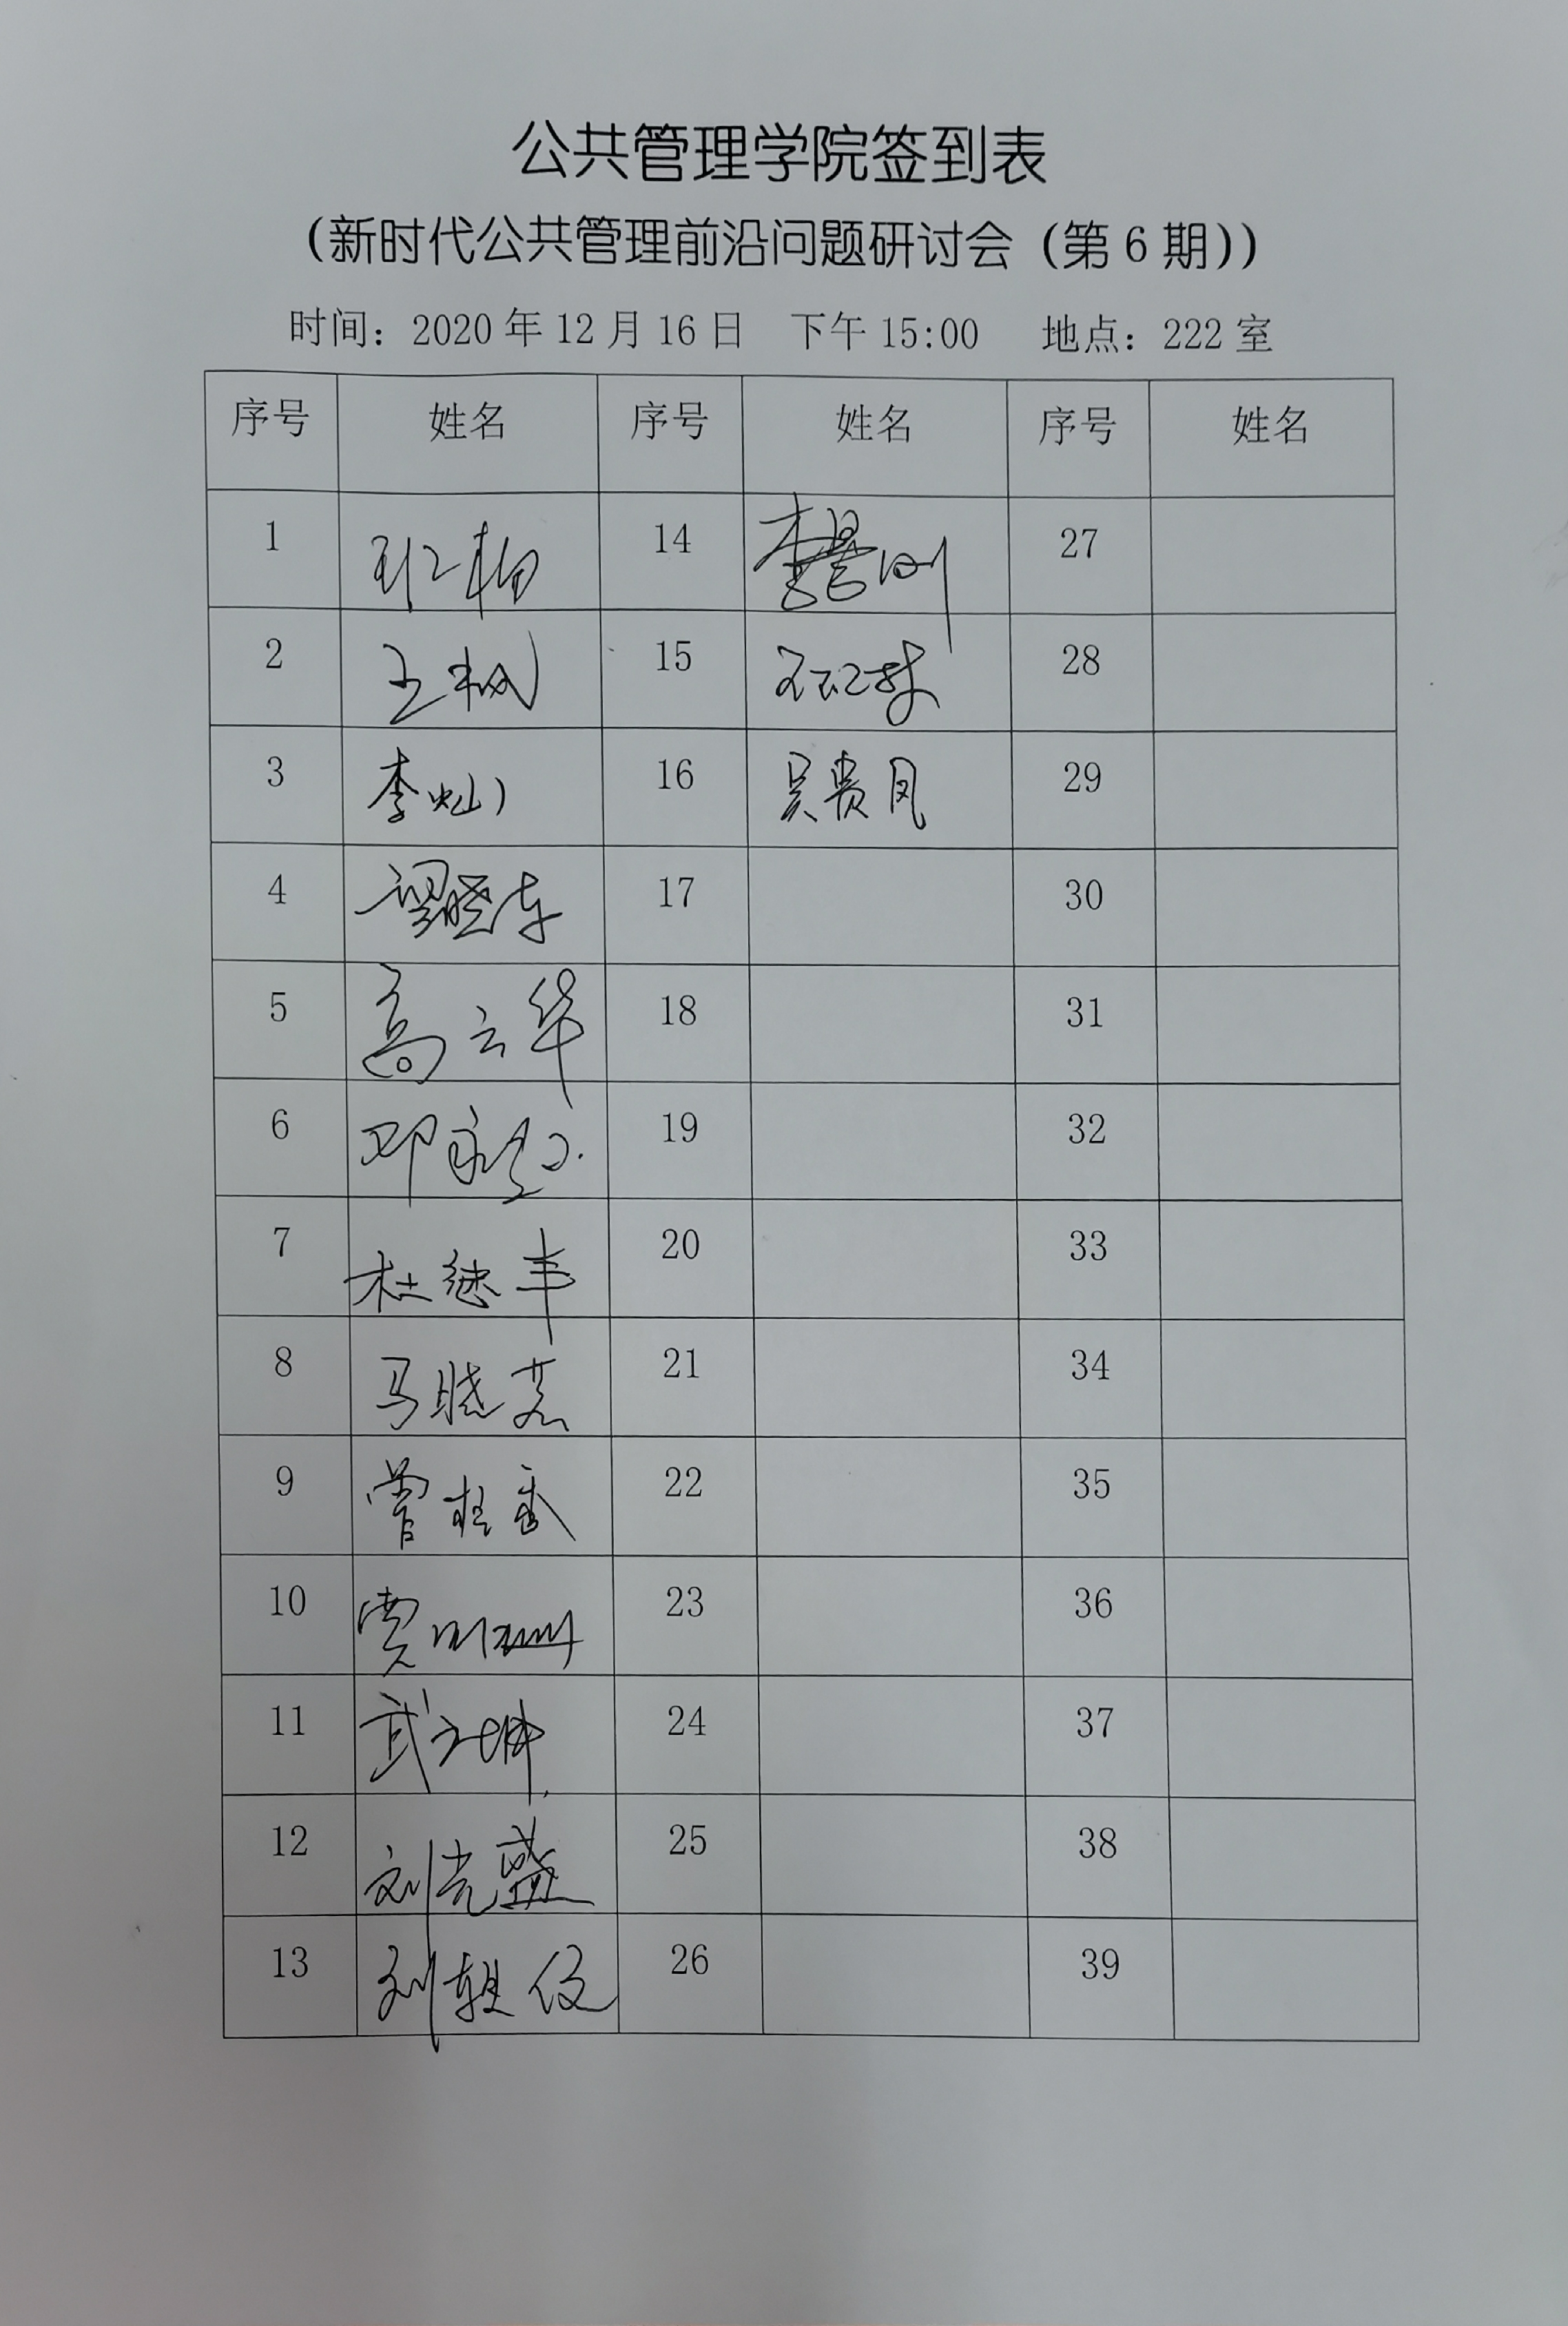 公共管理学院签到表
（新时代公共管理前沿问题研讨会（第6期））
时间：2020年12月16日 下午15:00 地点：222室
序号 姓名 序号 姓名 序号 姓名
1 14 27
2 王枫 15 28
3 李灿 16 吴贵凤 29
4 梁晓东 17 30
5 高云华 18 31
6 邓 19 32
7 杜继丰 20 33
8 马晓茗 21 34
9 曾桂香 22 35
10 贾 23 36
11 武 24 37
12 刘光盛 25 38
13 刘轶俊 26 39